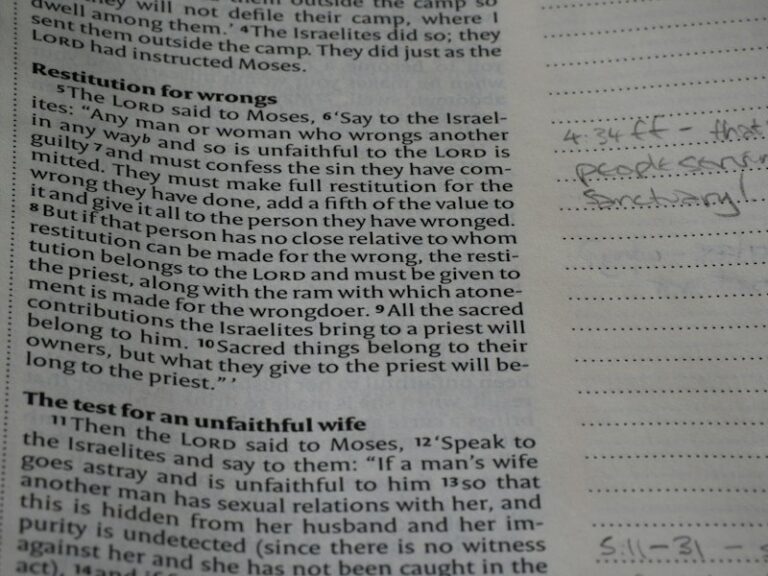 they will not defile their camp, where I
dwell among them.' 4 The Israelites did so; they
sent them outside the camp. They did just as the
LORD had instructed Moses.
Restitution for wrongs
5 The LORD said to Moses, 6 'Say to the Israel-
ites: "Any man or woman who wrongs another
in any way b and so is unfaithful to the LORD is
guilty 7 and must confess the sin they have com-
mitted. They must make full restitution for the
wrong they have done, add a fifth of the value to
it and give it all to the person they have wronged.
8 But if that person has no close relative to whom
restitution can be made for the wrong, the resti-
tution belongs to the LORD and must be given to
the priest, along with the ram with which atone-
ment is made for the wrongdoer. 9 All the sacred
contributions the Israelites bring to a priest will
belong to him. 10 Sacred things belong to their
owners, but what they give to the priest will be-
long to the priest." '
The test for an unfaithful wife
11 Then the LORD said to Moses, 12 'Speak to
the Israelites and say to them: "If a man's wife
goes astray and is unfaithful to him 13 so that
another man has sexual relations with her, and
this is hidden from her husband and her im-
purity is undetected (since there is no witness
against her and she has not been caught in the
act), 14 and if
4:34ff - that
people
sanctuary!
5:11-31 -